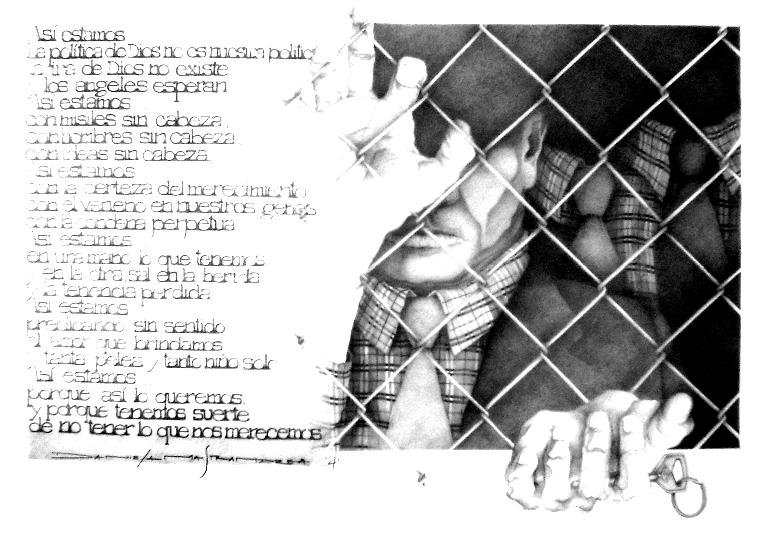 Así estamos
La política de Dios no es nuestra política
la ira de Dios no existe
y los angeles esperan
Así estamos
con misiles sin cabeza,
con hombres sin cabeza,
con ideas sin cabeza.
Así estamos
con la certeza del merecimiento
con el veneno en nuestros genes
con la condena perpetua
Así estamos
en una mano lo que tenemos
en la otra sal en la herida
y la tenencia perdida
Así estamos
predicando sin sentido
el amor que brindamos
y tanta pelea y tanto niño solo
Así estamos
porque así lo queremos,
y porque tenemos suerte
de no tener lo que nos merecemos